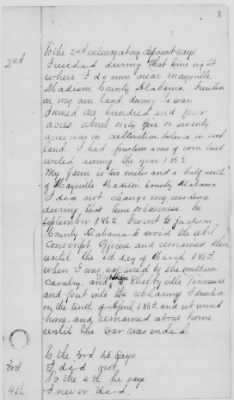 2
2nd
To the 2nd interrogatory deponent says
I resided during that time right
where I do now near Maysville
Madison County Alabama. I resided
on my own land during the war.
I owned one hundred and four
acres about sixty five or seventy
acres was in cultivation balance in wood
land. I had fourteen acres of corn land
rented during the year 1863
My farm is two miles and a half north
of Maysville Madison County Alabama
I did not change my residence
during that time or business. In
September 1862 I went to Jackson
County Alabama to avoid the rebel
Conscript Officer and remained there
until the 1st day of March 1863
when I was captured by the
cavalry, and
and put into the rebel army I deserted
on the tenth of April 1863, and went
home, and remained about home
until the war was ended.
To the 3rd he says
3rd
I did not
To the 4th he says
4th
I never did.